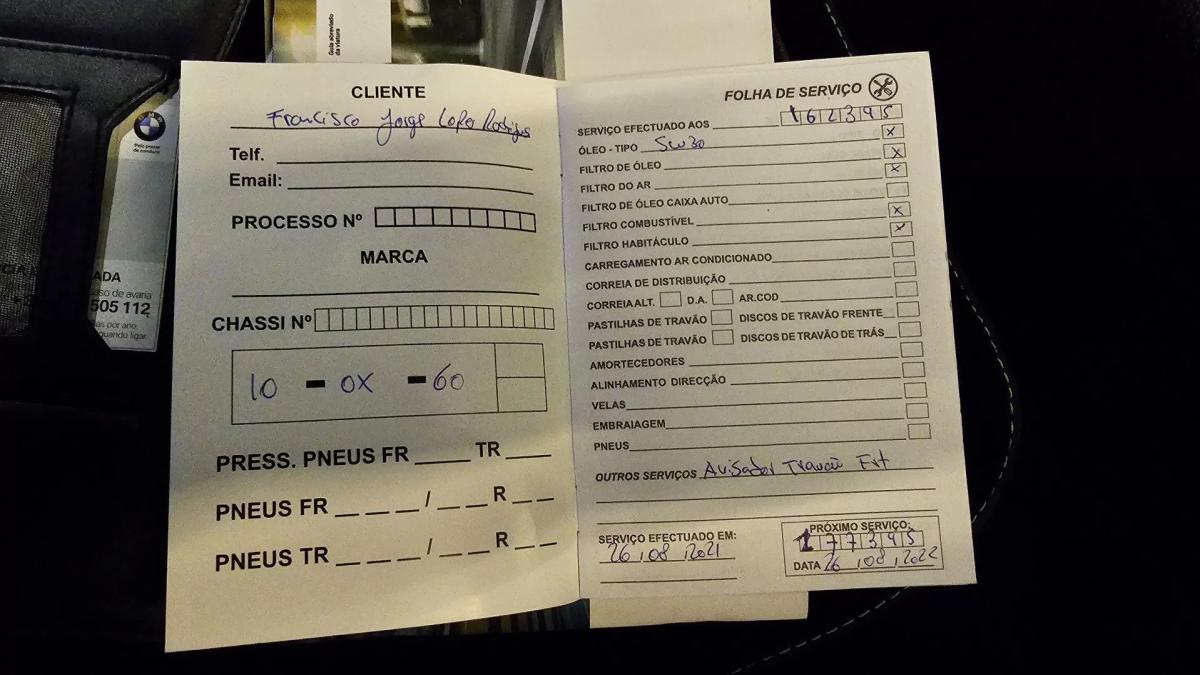 Guia abreviado
da viatura
BMW
Pelo prazer
de conduzir
ADA
so de avaria
505 112
as por ano.
quando ligar.
CLIENTE
Francisco Jorge Lopes Rodrigues
Telf.
Email:
PROCESSO Nº
MARCA
CHASSI Nº
10 - OX - 60
PRESS. PNEUS FR ____ TR ____
PNEUS FR _ _ _ / _ _ R _ _
PNEUS TR _ _ _ / _ _ R _ _
FOLHA DE SERVIÇO
SERVIÇO EFECTUADO AOS 162395
ÓLEO - TIPO 5W30 X
FILTRO DE ÓLEO X
FILTRO DO AR X
FILTRO DE ÓLEO CAIXA AUTO
FILTRO COMBUSTÍVEL X
FILTRO HABITÁCULO X
CARREGAMENTO AR CONDICIONADO
CORREIA DE DISTRIBUIÇÃO
CORREIA ALT. D.A. AR.COD
PASTILHAS DE TRAVÃO DISCOS DE TRAVÃO FRENTE
PASTILHAS DE TRAVÃO DISCOS DE TRAVÃO DE TRÁS
AMORTECEDORES
ALINHAMENTO DIRECÇÃO
VELAS
EMBRAIAGEM
PNEUS
OUTROS SERVIÇOS Avisador Travão Frt
SERVIÇO EFECTUADO EM:
26, 08, 2021
PRÓXIMO SERVIÇO:
177395
DATA 26, 08, 2022